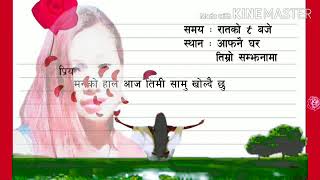 Made with KINEMASTER
समय : रातको ८ बजे
स्थान : आफनै घर
तिम्रो सम्झनामा
प्रिय
मनको हाल आज तिमी सामु खोल्दै छु